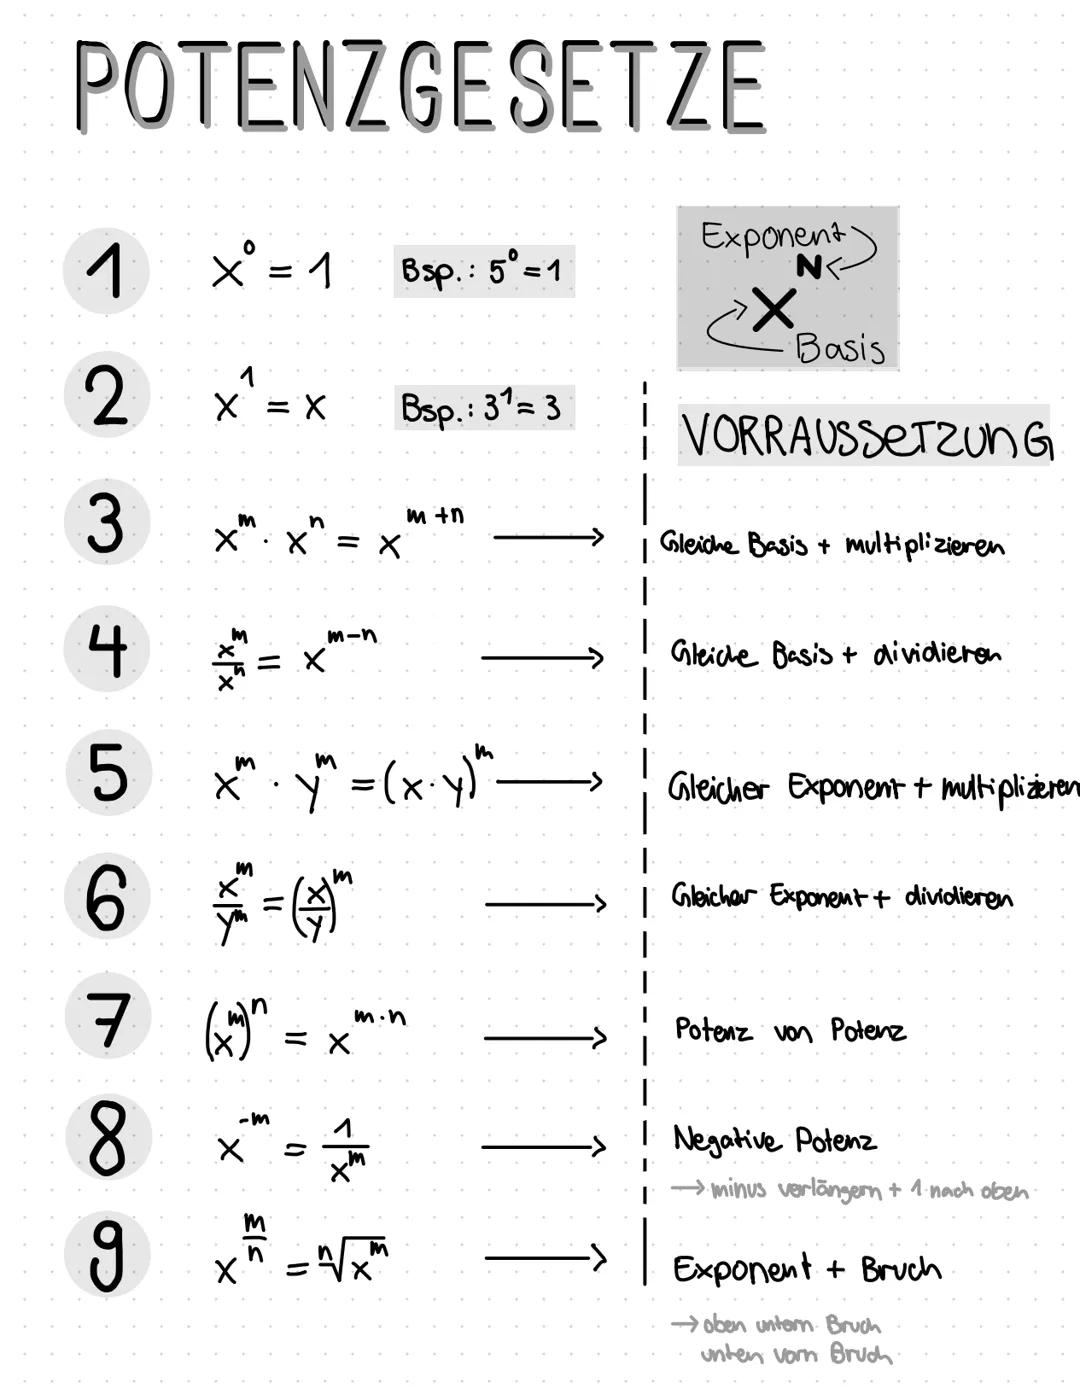 POTENZGESETZE
Exponent
N
X
Basis
1 x⁰ = 1 Bsp.: 5⁰ = 1
2 x¹ = x Bsp.: 3¹ = 3
VORRAUSSETZUNG
3 xᵐ · xⁿ = xᵐ⁺ⁿ → Gleiche Basis + multiplizieren
4 xᵐ/xⁿ = xᵐ⁻ⁿ → Gleiche Basis + dividieren
5 xᵐ · yᵐ = (x · y)ᵐ → Gleicher Exponent + multiplizieren
6 xᵐ/yᵐ = (x/y)ᵐ → Gleicher Exponent + dividieren
7 (xᵐ)ⁿ = xᵐ·ⁿ → Potenz von Potenz
8 x⁻ᵐ = 1/xᵐ → Negative Potenz
→ minus verlängern + 1 nach oben
9 x^(m/n) = ⁿ√xᵐ → Exponent + Bruch
→ oben unterm Bruch
unten vorm Bruch